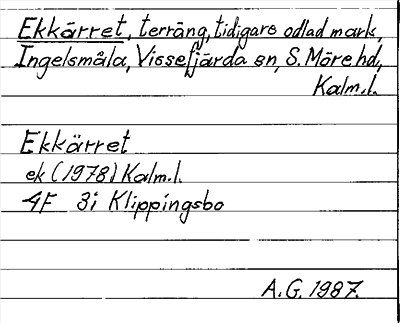 Ekkärret, terräng, tidigare odlad mark,
Ingelsmåla, Vissefjärda sn, S. Möre hd,
Kalm.l.
Ekkärret
ek (1978) Kalm.l.
4F 3i Klippingsbo
A.G. 1987.